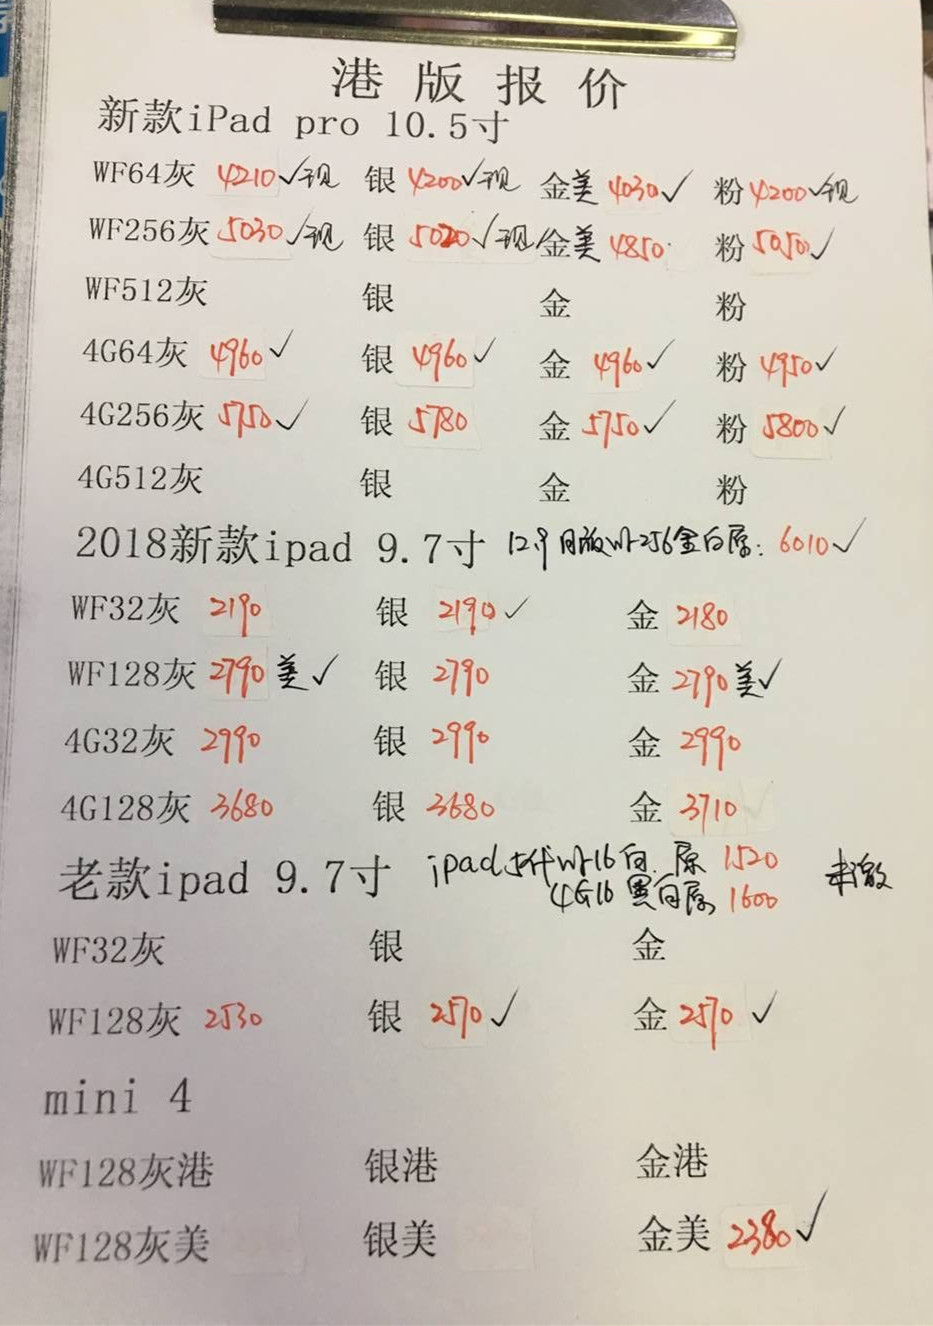 港版报价
新款iPad pro 10.5寸
WF64灰 4210✓现 银 4200✓现 金美 4030✓ 粉 4200✓现
WF256灰 5030✓现 银 5020✓现 金美 4850 粉 5050✓
WF512灰 银 金 粉
4G64灰 4960✓ 银 4960✓ 金 4960✓ 粉 4950✓
4G256灰 5750✓ 银 5780 金 5750✓ 粉 5800✓
4G512灰 银 金 粉
2018新款ipad 9.7寸 12.9 日版Wf-256金白原: 6010✓
WF32灰 2190 银 2190✓ 金 2180
WF128灰 2790美✓ 银 2790 金 2790美✓
4G32灰 2990 银 2990 金 2990
4G128灰 3680 银 3680 金 3710
老款ipad 9.7寸 ipad5代Wf-16白.原 1520 未激
4G16黑白原 1600
WF32灰 银 金
WF128灰 2530 银 2570✓ 金 2570✓
mini 4
WF128灰港 银港 金港
WF128灰美 银美 金美 2380✓